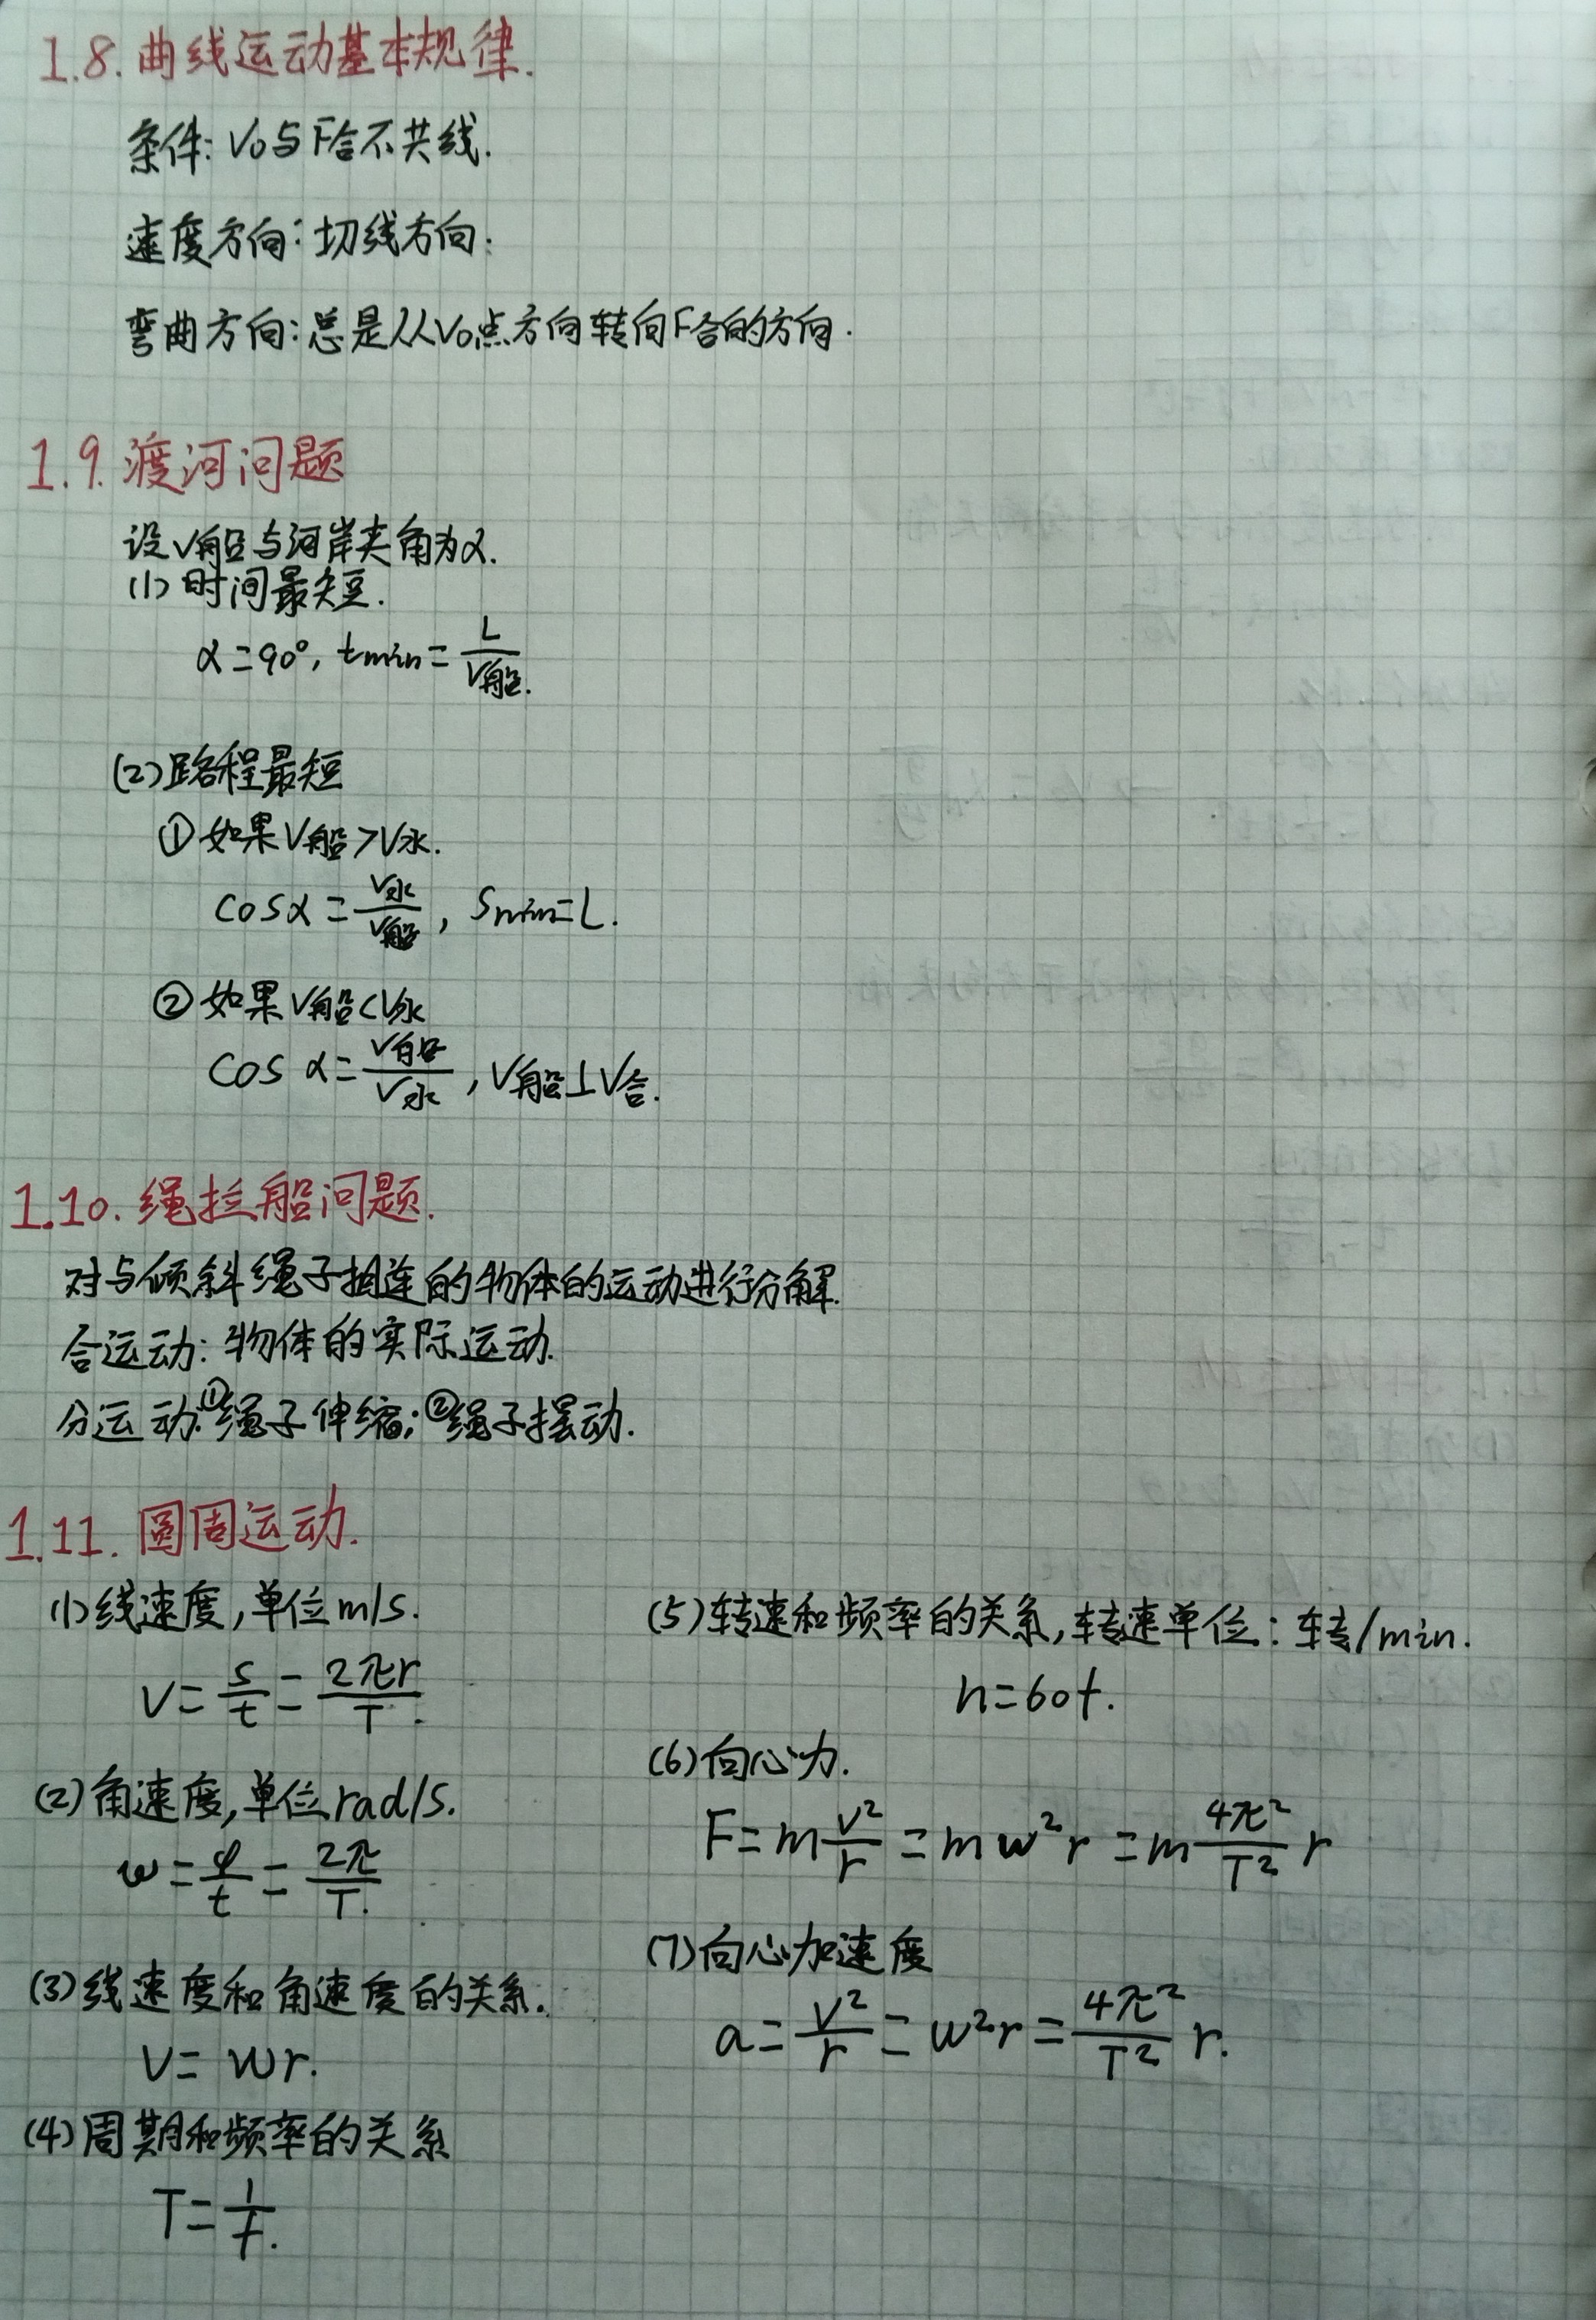 1.8.曲线运动基本规律.
条件:V₀与F合不共线.
速度方向:切线方向.
弯曲方向:总是从V₀点方向转向F合的方向.
1.9.渡河问题
设V船与河岸夹角为α.
(1)时间最短.
α=90°, tmin=L/V船.
(2)路程最短
①如果V船>V水.
cosα=V水/V船, Smin=L.
②如果V船<V水
cosα=V船/V水, V船⊥V合.
1.10.绳拉船问题.
对与倾斜绳子相连的物体的运动进行分解.
合运动:物体的实际运动.
分运动:①绳子伸缩;②绳子摆动.
1.11.圆周运动.
(1)线速度,单位m/s.
V=s/t=2πr/T.
(2)角速度,单位rad/s.
w=φ/t=2π/T.
(3)线速度和角速度的关系.
V=wr.
(4)周期和频率的关系
T=1/f.
(5)转速和频率的关系,转速单位:转/min.
n=60f.
(6)向心力.
F=mv²/r=mw²r=m4π²/T² r
(7)向心加速度
a=v²/r=w²r=4π²/T² r.